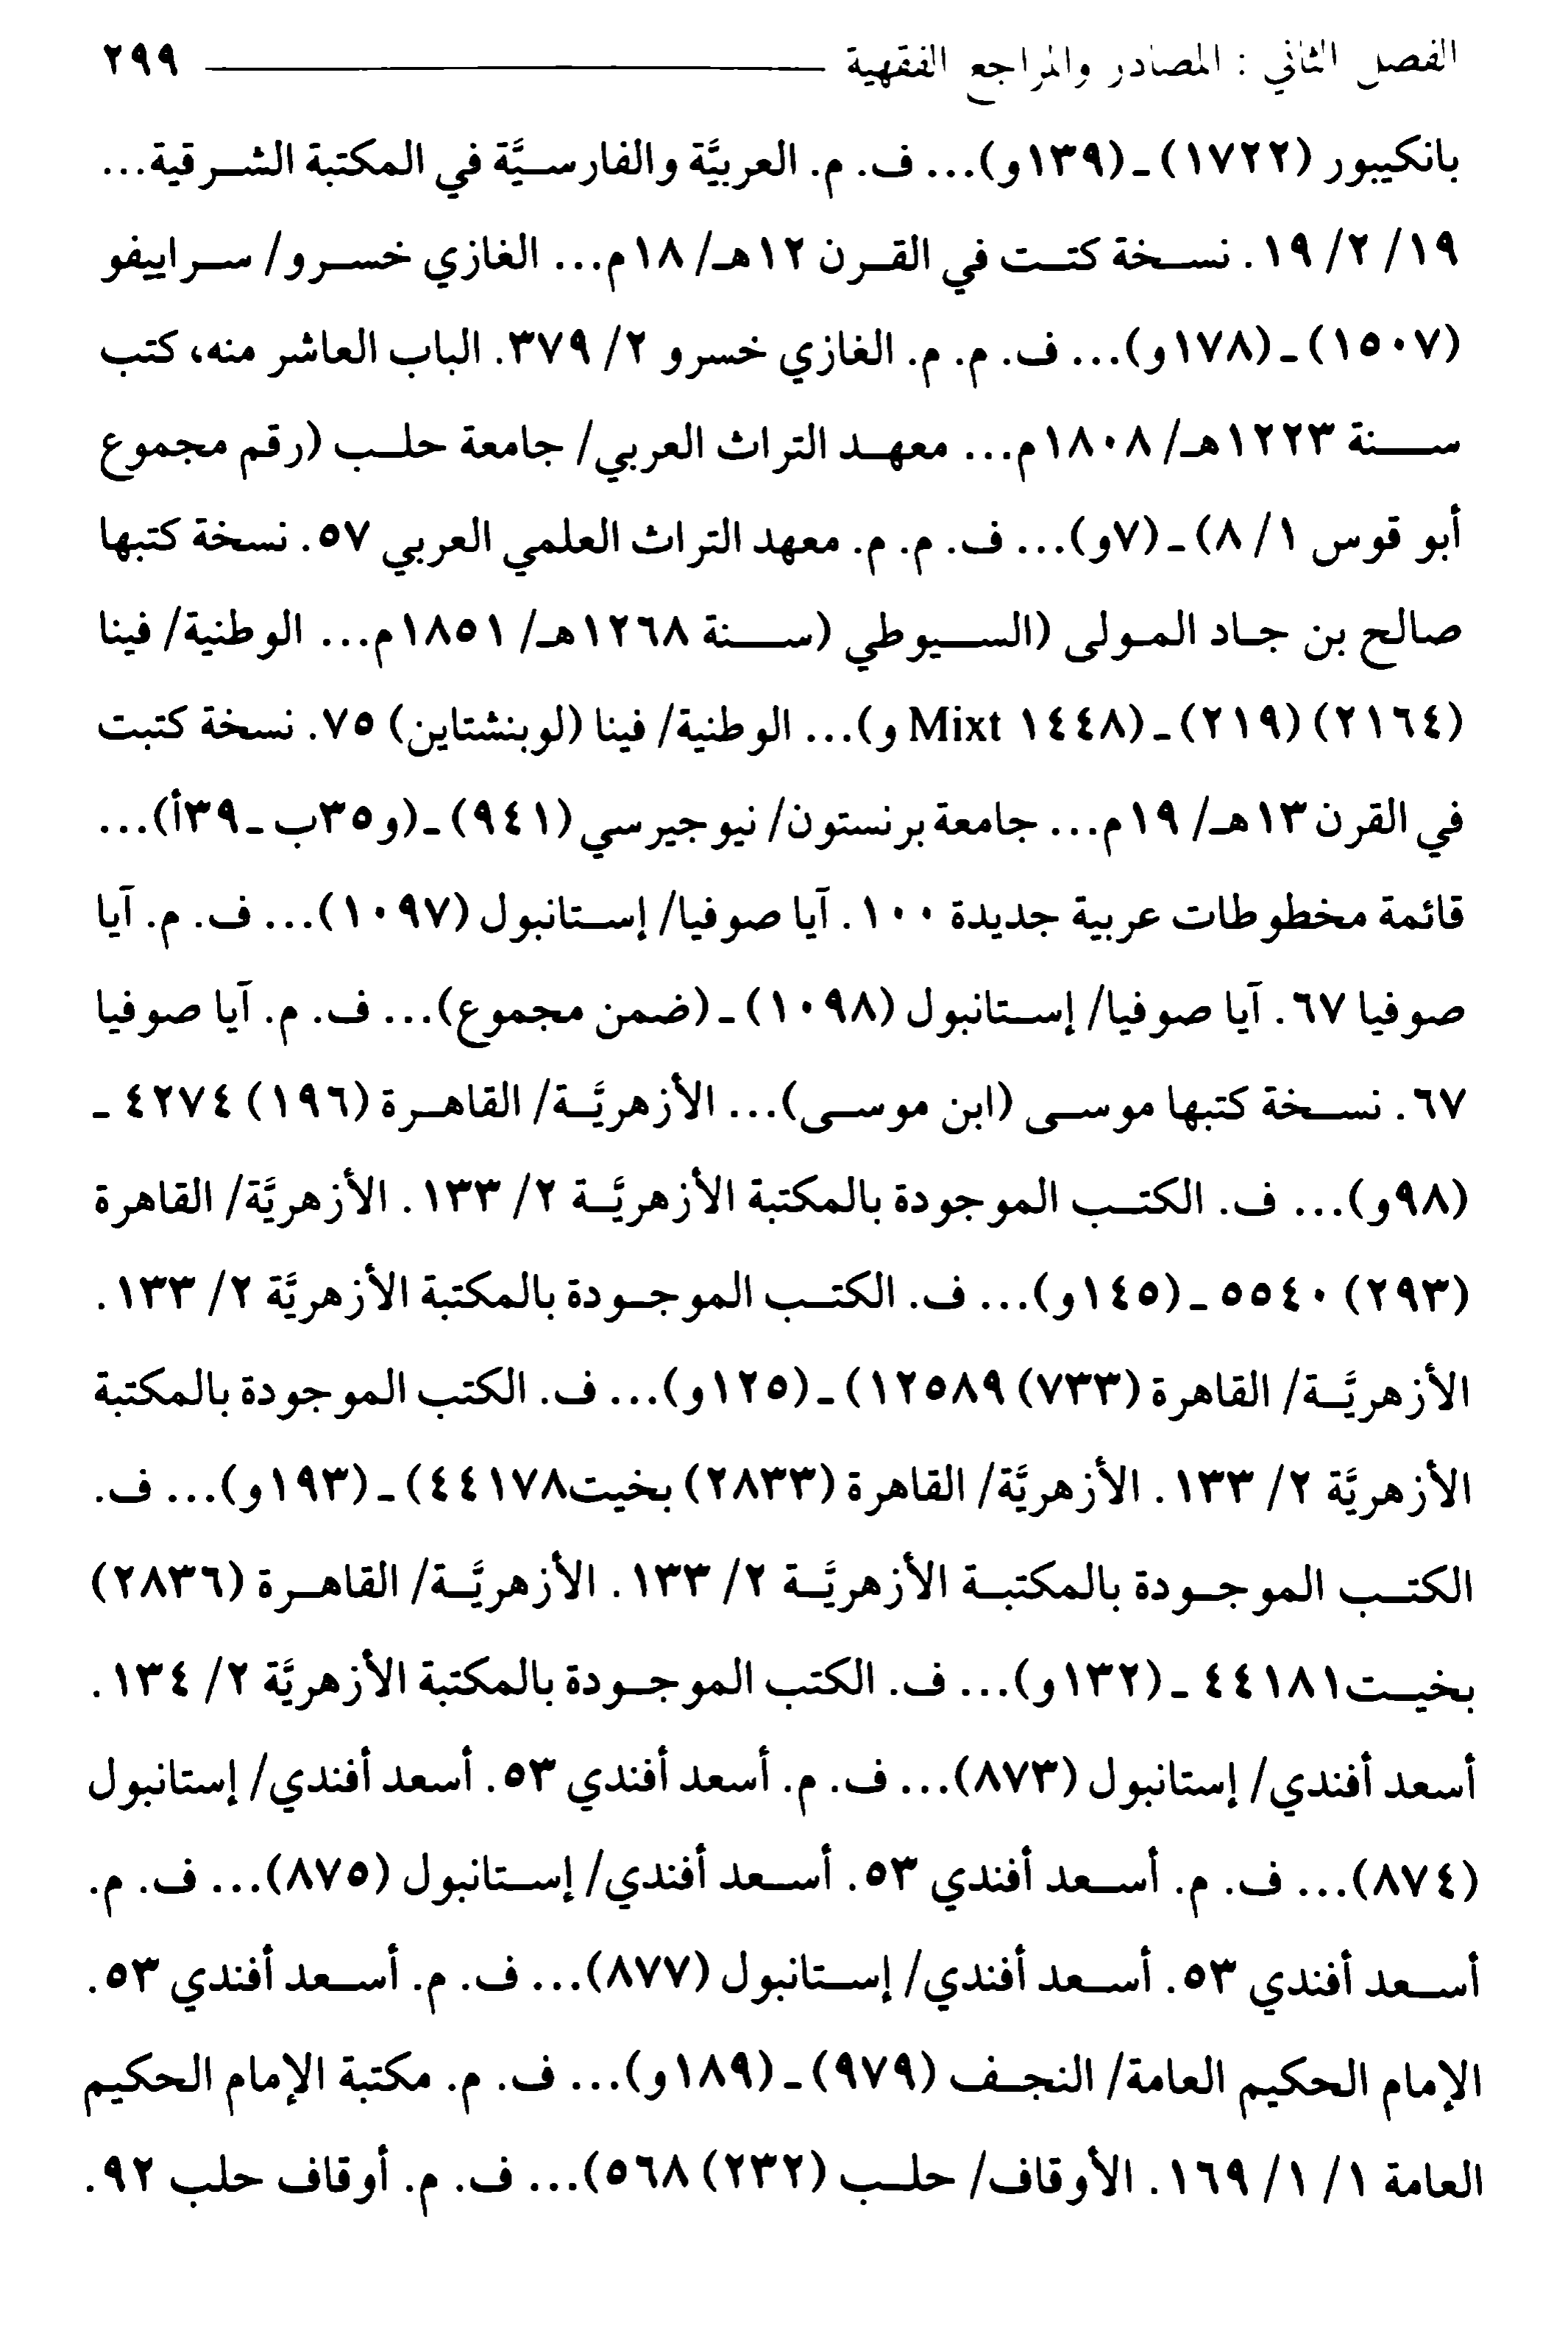 الفصل الثاني : المصادر والمراجع الفقهية ٢٩٩
بانكيبور (١٧٢٢) ـ (١٣٩و)... ف. م. العربيَّة والفارسيَّة في المكتبة الشرقية...
١٩/ ٢/ ١٩. نسخة كتت في القرن ١٢هـ/ ١٨م... الغازي خسرو/ سراييفو
(١٥٠٧) ـ (١٧٨و)... ف. م. م. الغازي خسرو ٢/ ٣٧٩. الباب العاشر منه، كتب
سنة ١٢٢٣هـ/ ١٨٠٨م... معهد التراث العربي/ جامعة حلب (رقم مجموع
أبو قوس ١/ ٨) ـ (٧و)... ف. م. م. معهد التراث العلمي العربي ٥٧. نسخة كتبها
صالح بن جاد المولى (السيوطي (سنة ١٢٦٨هـ/ ١٨٥١م... الوطنية/ فينا
(٢١٦٤) (٢١٩) ـ (١٤٤٨ Mixt و)... الوطنية/ فينا (لوبنشتاين) ٧٥. نسخة كتبت
في القرن ١٣هـ/ ١٩م... جامعة برنستون/ نيوجيرسي (٩٤١) ـ (و٣٥ب ـ ٣٩أ)...
قائمة مخطوطات عربية جديدة ١٠٠. آيا صوفيا/ إستانبول (١٠٩٧)... ف. م. آيا
صوفيا ٦٧. آيا صوفيا/ إستانبول (١٠٩٨) ـ (ضمن مجموع)... ف. م. آيا صوفيا
٦٧. نسخة كتبها موسى (ابن موسى)... الأزهريَّة/ القاهرة (١٩٦) ٤٢٧٤ ـ
(٩٨و)... ف. الكتب الموجودة بالمكتبة الأزهريَّة ٢/ ١٣٣. الأزهريَّة/ القاهرة
(٢٩٣) ٥٥٤٠ ـ (١٤٥و)... ف. الكتب الموجودة بالمكتبة الأزهريَّة ٢/ ١٣٣.
الأزهريَّة/ القاهرة (٧٣٣) ١٢٥٨٩) ـ (١٢٥و)... ف. الكتب الموجودة بالمكتبة
الأزهريَّة ٢/ ١٣٣. الأزهريَّة/ القاهرة (٢٨٣٣) بخيت٤٤١٧٨) ـ (١٩٣و)... ف.
الكتب الموجودة بالمكتبة الأزهريَّة ٢/ ١٣٣. الأزهريَّة/ القاهرة (٢٨٣٦)
بخيت٤٤١٨١ ـ (١٣٢و)... ف. الكتب الموجودة بالمكتبة الأزهريَّة ٢/ ١٣٤.
أسعد أفندي/ إستانبول (٨٧٣)... ف. م. أسعد أفندي ٥٣. أسعد أفندي/ إستانبول
(٨٧٤)... ف. م. أسعد أفندي ٥٣. أسعد أفندي/ إستانبول (٨٧٥)... ف. م.
أسعد أفندي ٥٣. أسعد أفندي/ إستانبول (٨٧٧)... ف. م. أسعد أفندي ٥٣.
الإمام الحكيم العامة/ النجف (٩٧٩) ـ (١٨٩و)... ف. م. مكتبة الإمام الحكيم
العامة ١/ ١/ ١٦٩. الأوقاف/ حلب (٢٣٢) ٥٦٨)... ف. م. أوقاف حلب ٩٢.